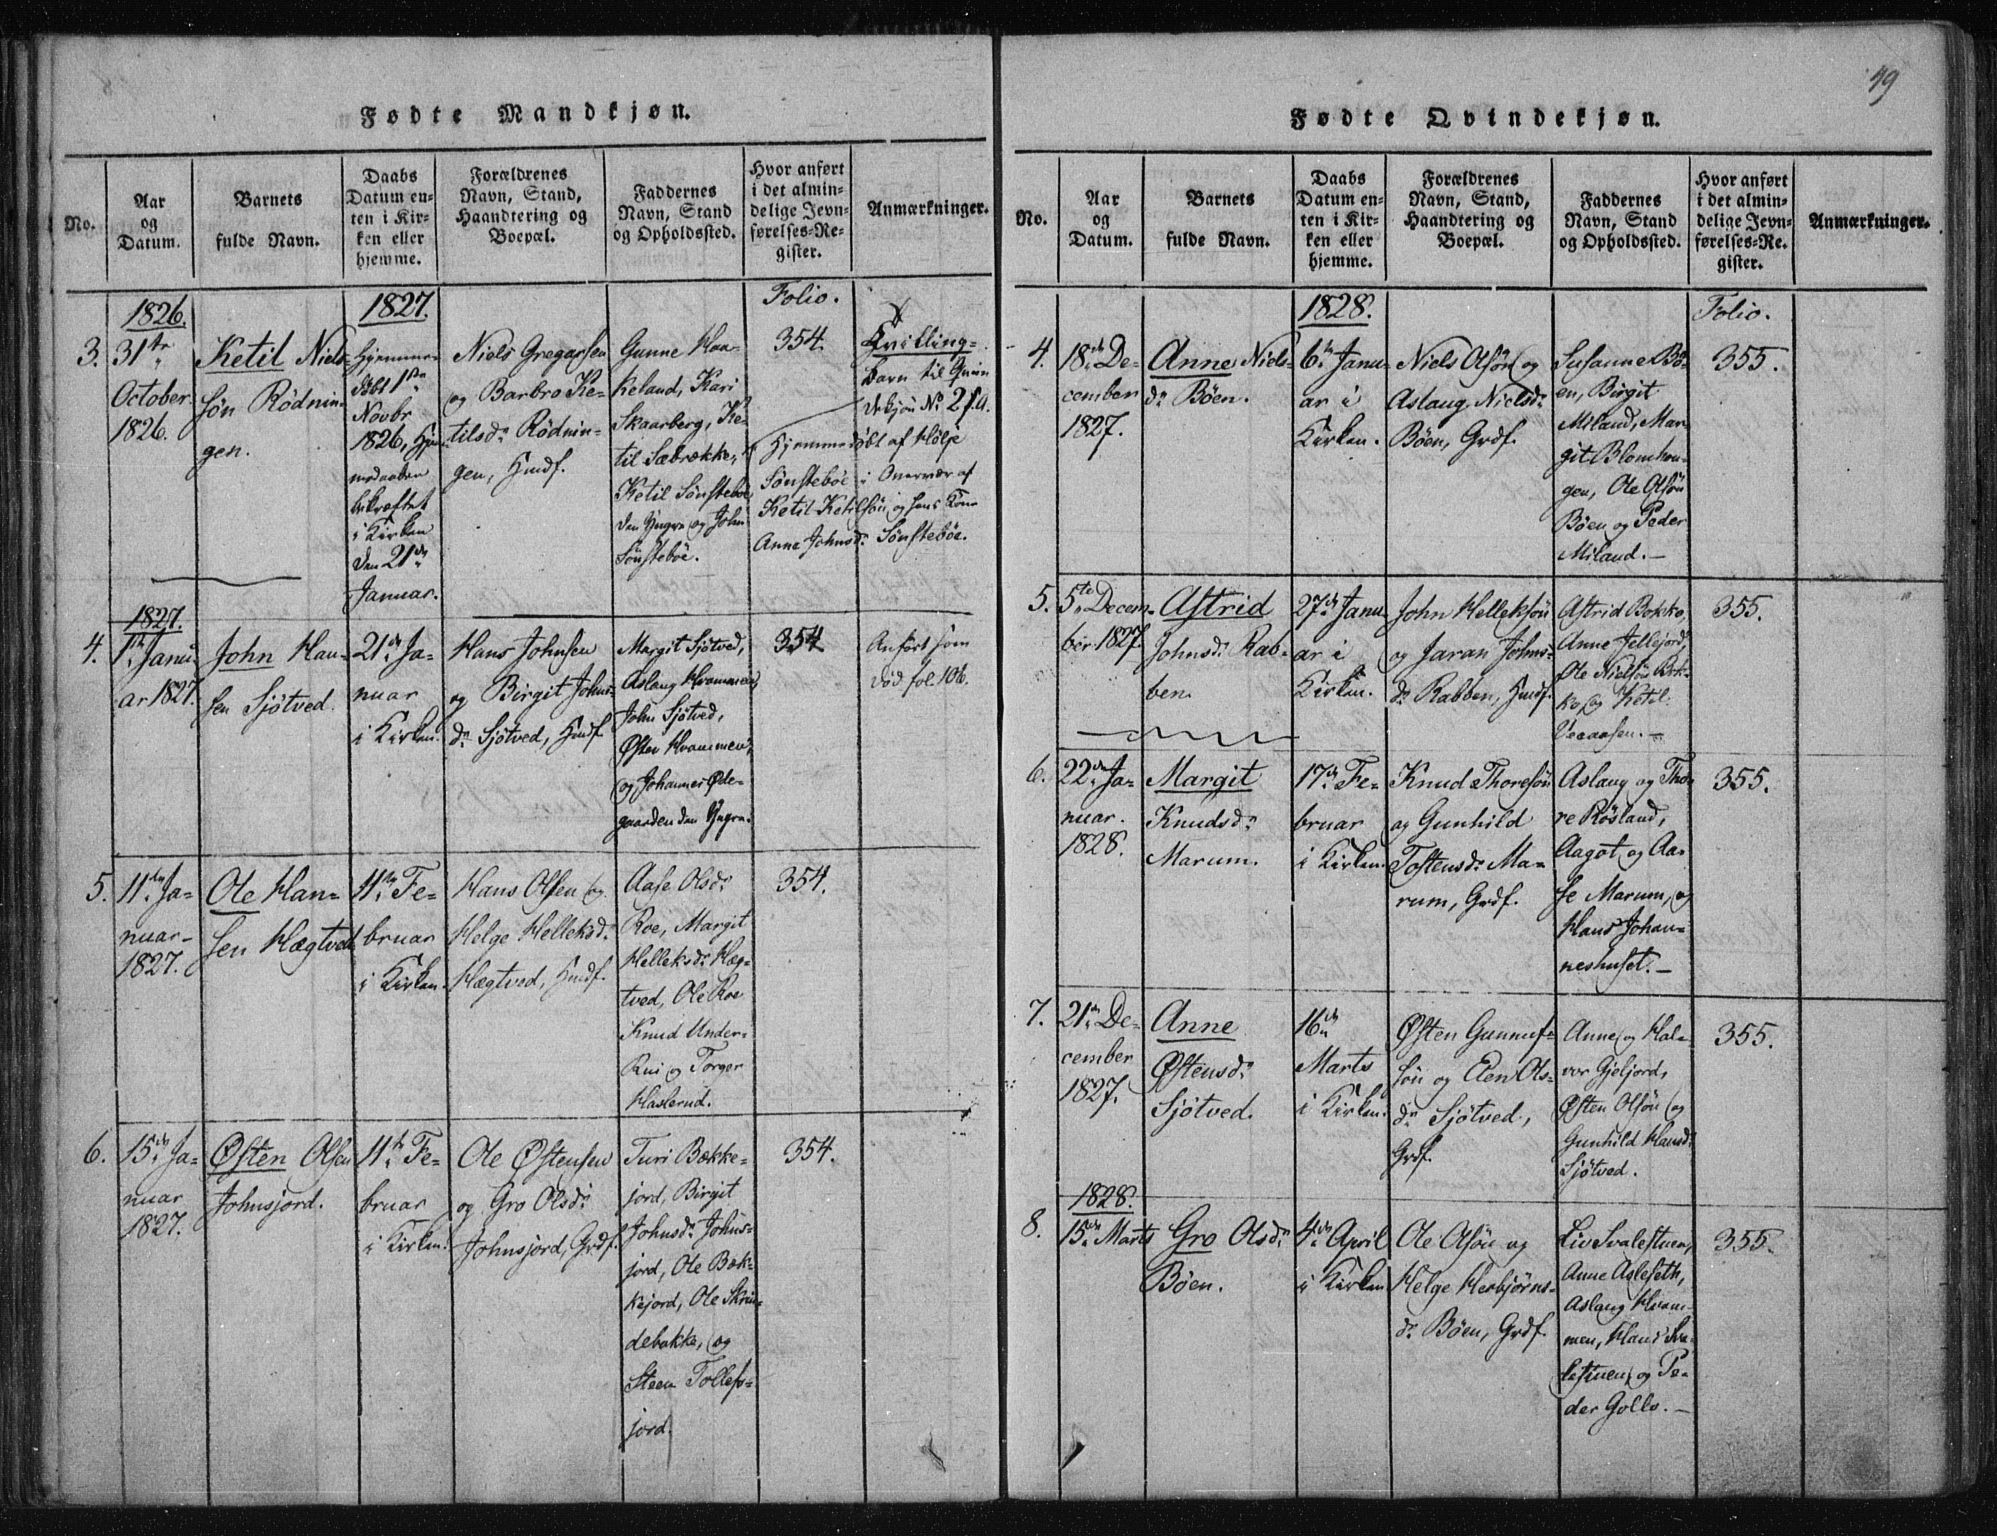 49
Fødte Mandkjøn.
No.
Aar
og
Datum.
Barnets
fulde Navn.
Daabs
Datum en-
ten i Kir-
ken eller
hjemme.
Forældrenes
Navn, Stand,
Haandtering og
Boepæl.
Faddernes
Navn, Stand
og Opholdssted.
Hvor anført
i det almin-
delige Jevn-
førelses-Re-
gister.
Anmærkninger.
1826.
1827.
Folio.
3.
31te
October
1826.
Ketil Niels-
søn Rødnin-
gen.
Hjemme-
døbt 1ste
Novbr
1826, Hjem-
medaaben
bekræftet
i Kirken
den 21de
Januar.
Niels Gregarsen
og Barbro Ke-
tilsdr Rødnin-
gen, Hmdf.
Gunne Haa-
keland, Kari
Skaarberg, Ke-
til Sæbrække,
Ketil Sønstebøe
den Yngre og John
Sønstebøe.
354.
Tvilling-
barn til Qvin
dekjøn No 21.a.
Hjemmedøbt af Helge
Sønstebøe i Overvær af
Ketil Ketilsøn og hans Kone
Anne Johnsdr Sønstebøe.
1827.
4.
1te Janu-
ar 1827.
John Han-
sen Sjøtved.
21de Ja-
nuar
i Kirken.
Hans Johnsen
og Birgit Johns-
dr Sjøtved, Hmdf.
Margit Sjøtved,
Aslaug Hvammen,
John Sjøtved,
Østen Hvammen,
og Johannes Øde-
gaarden den Yngre.
354
Anført som
død fol 106.
5.
11te Ja-
nuar
1827.
Ole Han-
sen Hægtved
11te Fe-
bruar
i Kirken.
Hans Olsen og
Helge Helleksdr
Hægtved, Hmdf.
Aase Olsdr
Roe, Margit
Helleksdr Hæg-
tved, Ole Roe
Knud Under-
Rui og Torger
Haslerud.
354.
6.
15de Ja-
nuar
1827.
Østen Olsen
Johnsjord.
11te Fe-
bruar
i Kirken.
Ole Østensen
og Gro Olsdr
Johnsjord, Grdf.
Turi Bække-
jord, Birgit
Johnsdr Johns-
jord, Ole Bæk-
kejord, Ole Skrin-
debakke, og
Steen Tollefs-
jord.
354.
Fødte Qvindekjøn.
No.
Aar
og
Datum.
Barnets
fulde Navn.
Daabs
Datum en-
ten i Kir-
ken eller
hjemme.
Forældrenes
Navn, Stand,
Haandtering og
Boepæl.
Faddernes
Navn, Stand
og Opholdssted.
Hvor anført
i det almin-
delige Jevn-
førelses-Re-
gister.
Anmærkninger.
1828.
Folio.
4.
18de De-
cember
1827.
Anne Niels-
dr Bøen.
6te Janu-
ar i
Kirken.
Niels Olsøn og
Aslaug Nielsdr
Bøen, Grdf.
Susanne Bø-
en, Birgit
Miland, Mar-
git Blomhou-
gen, Ole Olsøn
Bøen og Peder
Miland.
355.
5.
5te Decem-
ber 1827.
Astrid
Johnsdr Rab-
ben.
27de Janu-
ar i
Kirken.
John Helleksøn
og Jaran Johns-
dr Rabben, Hmdf.
Astrid Bokko,
Anne Jellejord,
Ole Nielsøn Bok-
ko, og Ketil
Veaaasen.
355.
6.
22de Ja-
nuar.
1828.
Margit
Knudsdr
Marum.
17de Fe-
bruar
i Kirken.
Knud Thoresøn
og Gunhild
Tostensdr Ma-
rum, Grdf.
Aslaug og Tho-
re Røsland,
Aagot og Aa-
se Marum, og
Hans Johan-
neshuset.
355.
7.
21de De-
cember
1827.
Anne
Østensdr
Sjøtved.
16de
Marts
i Kirken.
Østen Gunnuf-
søn og Elen Ols-
dr Sjøtved,
Grdf.
Anne og Hal-
vor Gjeljord,
Østen Olsøn og
Gunhild Hansdr
Sjøtved.
355.
1828.
8.
15de Marts
Gro Olsdr
Bøen.
4de April
i Kirken
Ole Olsøn og
Helge Herbjørns-
dr Bøen, Grdf.
Liv Svalestuen,
Anne Asleseth,
Aslaug Hvam-
men, Hans Sva-
lestuen, og Pe-
der Gollo.
355.